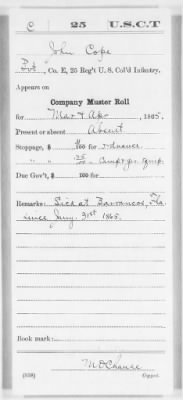 C 25 U.S.C.T
John Cope
Pvt, Co. E, 25 Reg't U. S. Col'd Infantry.
Appears on
Company Muster Roll
for Mar & Apr, 1865.
Present or absent Absent
Stoppage, $ 100 for
" " 100 Camp & gar. equip.
Due Gov't, $ 100 for
Remarks: Sick at Barrancas, Fla.
since Jany. 31st 1865.
Book mark:
(858) Copyist.